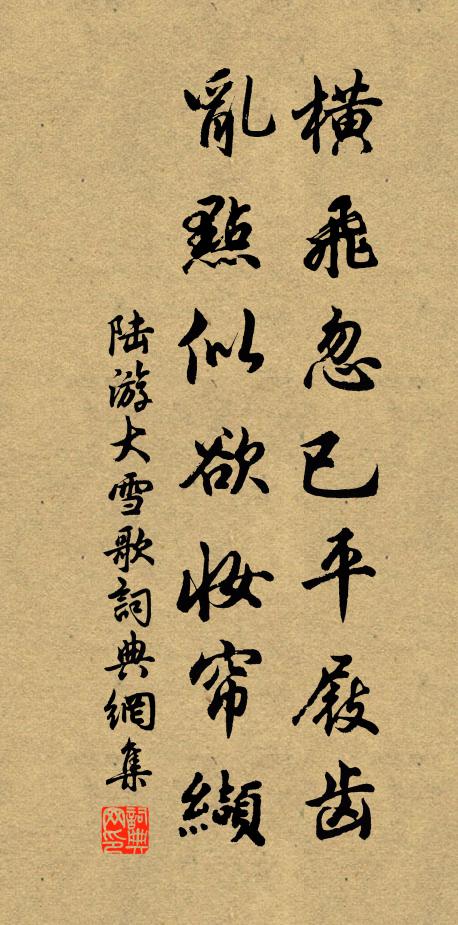 橫飛忽已平屐齒
亂點似欲妝帘纈
陆游大雪歌詞典網集
詞典網印